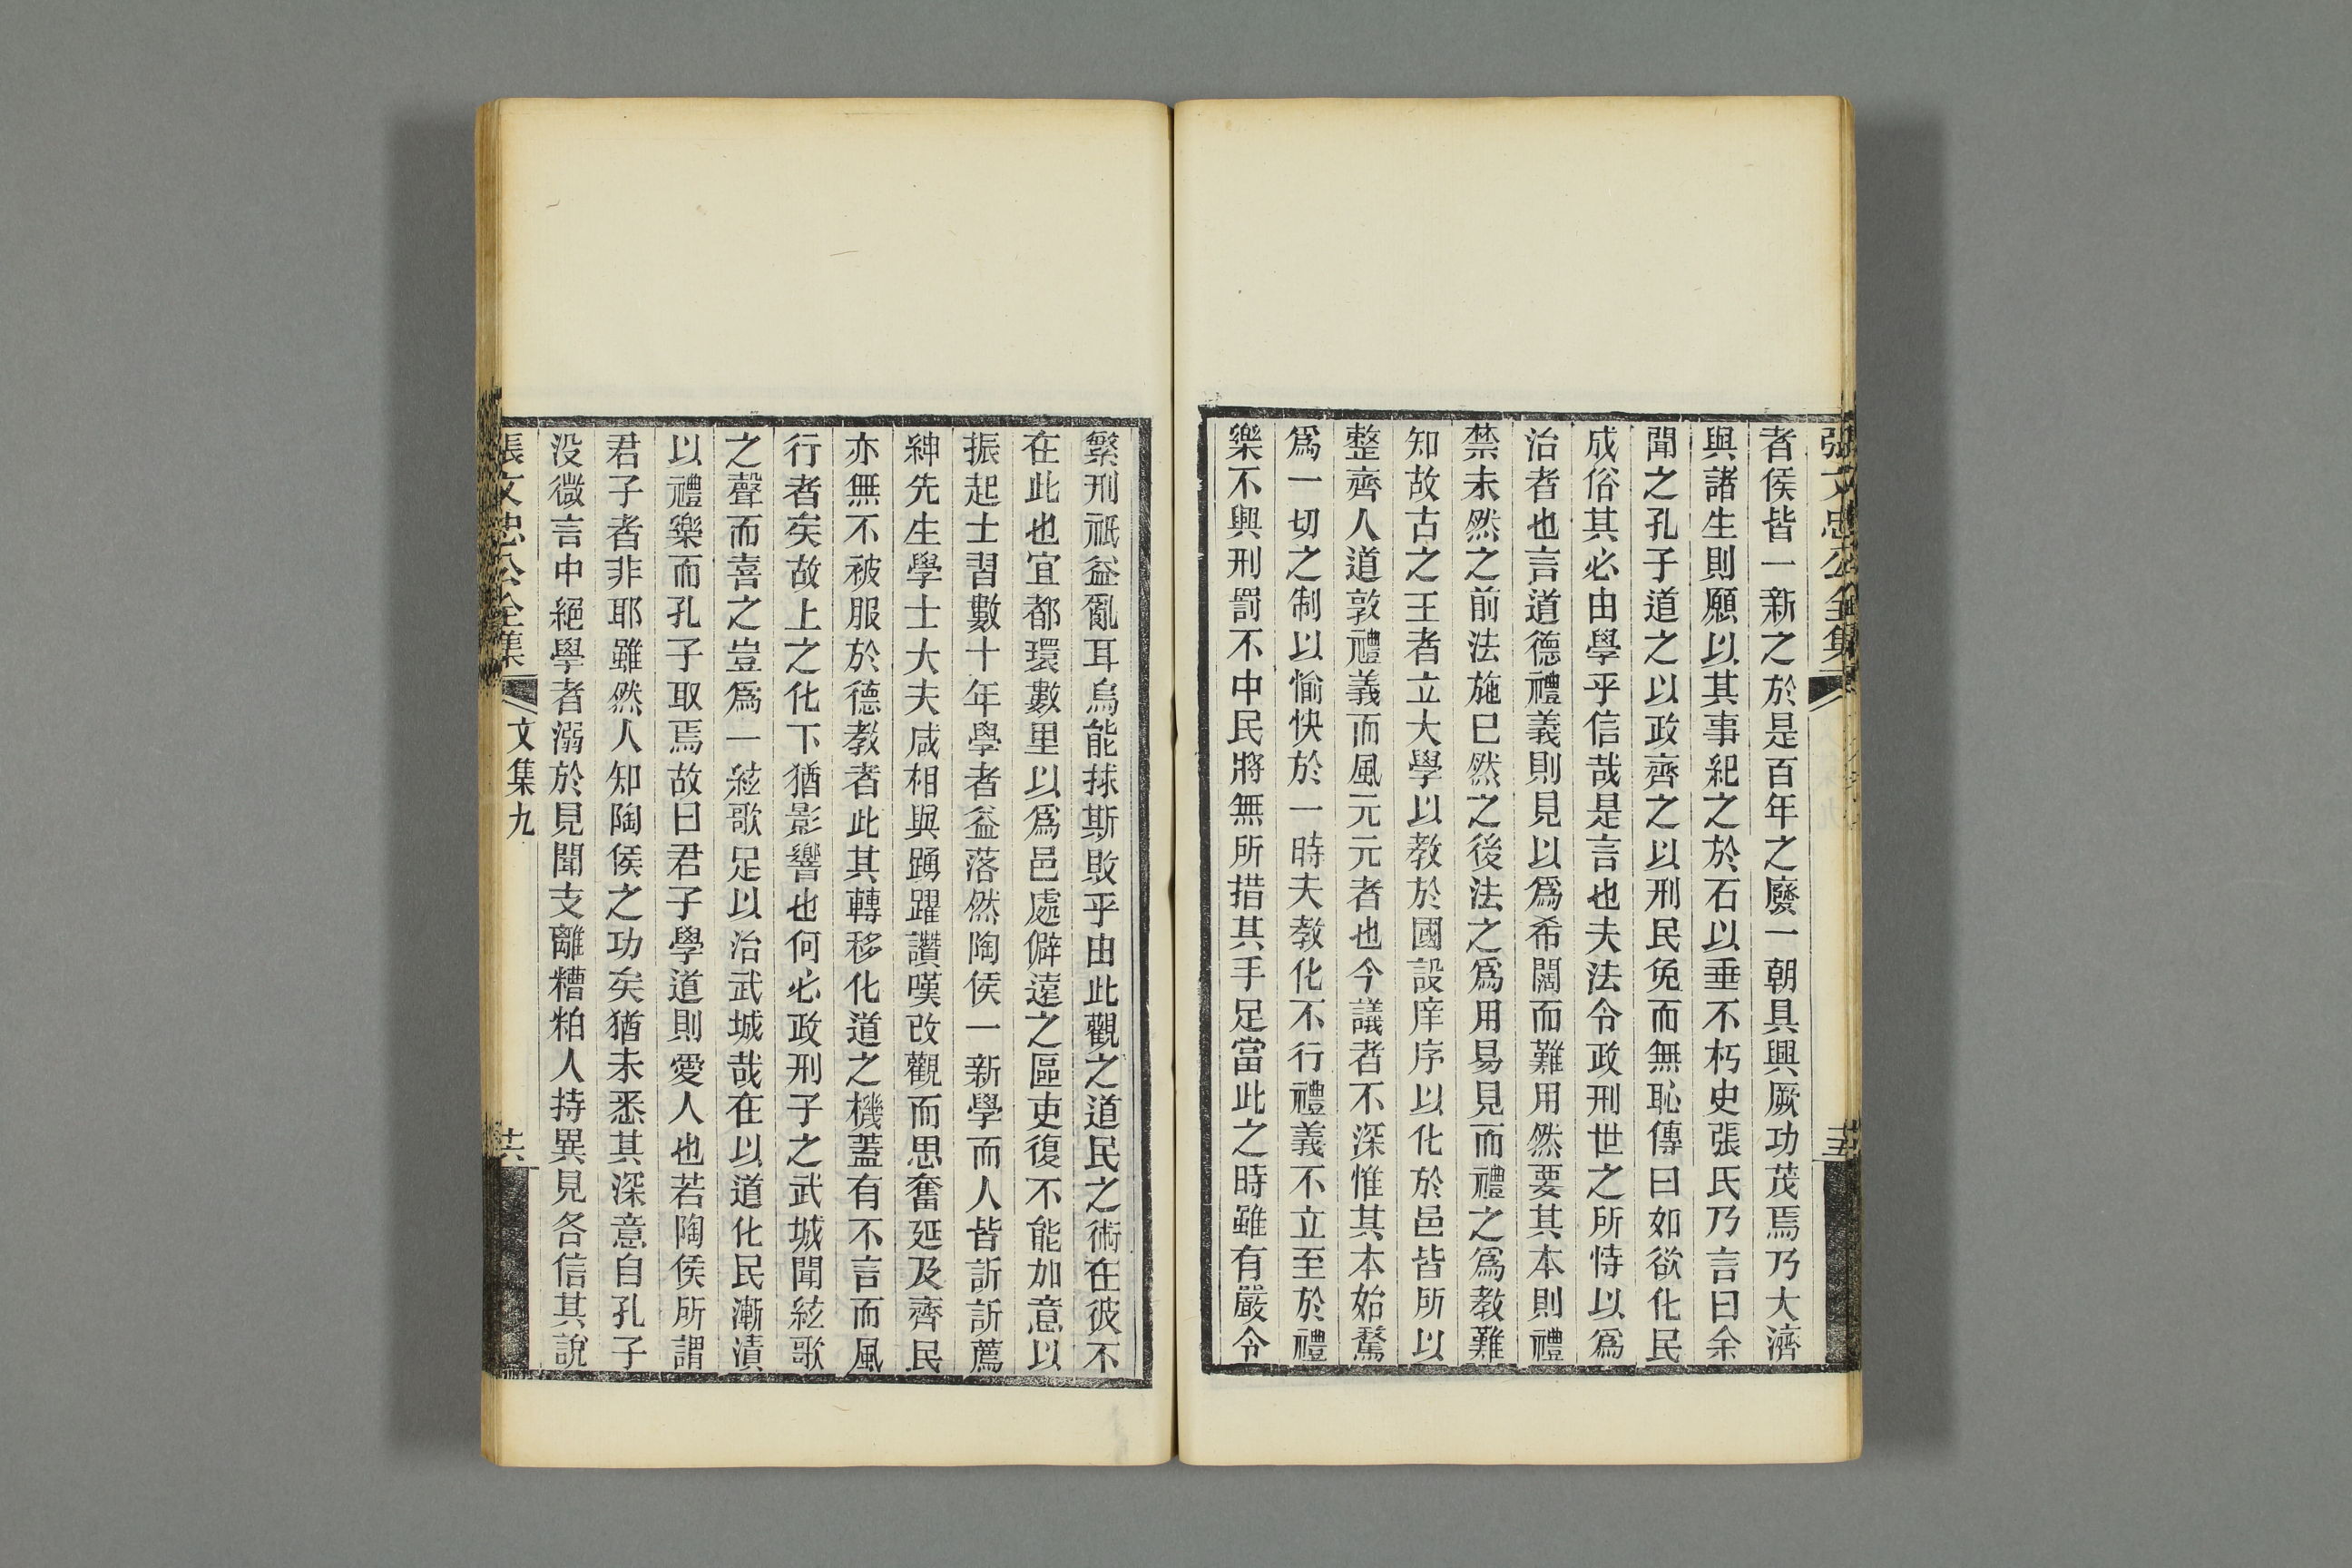 張文忠公全集
者侯皆一新之於是百年之廢一朝具興厥功茂焉乃大濟
與諸生則願以其事紀之於石以垂不朽史張氏乃言曰余
聞之孔子道之以政齊之以刑民免而無恥傳曰如欲化民
成俗其必由學乎信哉是言也夫法令政刑世之所恃以爲
治者也言道德禮義則見以爲希闊而難用然要其本則禮
禁未然之前法施已然之後法之爲用易見而禮之爲教難
知故古之王者立大學以教於國設庠序以化於邑皆所以
整齊人道敦禮義而風元元者也今議者不深惟其本始騖
爲一切之制以愉快於一時夫教化不行禮義不立至於禮
樂不興刑罰不中民將無所措其手足當此之時雖有嚴令
繁刑祇益亂耳烏能捄斯敗乎由此觀之道民之術在彼不
在此也宜都環數里以爲邑處僻遠之區吏復不能加意以
振起士習數十年學者益落然陶侯一新學而人皆訢訢薦
紳先生學士大夫咸相與踴躍讚嘆改觀而思奮延及齊民
亦無不被服於德教者此其轉移化道之機蓋有不言而風
行者矣故上之化下猶影響也何必政刑子之武城聞絃歌
之聲而喜之豈爲一絃歌足以治武城哉在以道化民漸漬
以禮樂而孔子取焉故曰君子學道則愛人也若陶侯所謂
君子者非耶雖然人知陶侯之功矣猶未悉其深意自孔子
没微言中絕學者溺於見聞支離糟粕人持異見各信其說
張文忠公全集
文集九
十六